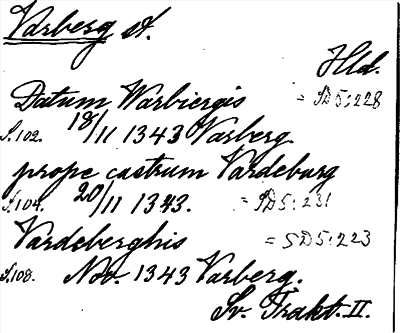 Varberg st.
Hld.
Datum Warbiergis = SD 5:228
S. 102. 18/11 1343 Varberg
prope castrum Vardeburg
S. 104. 20/11 1343. = SD 5:231
Vardeberghis = SD 5:223
S. 108. Nov. 1343 Varberg.
Sv. Trakt. II.